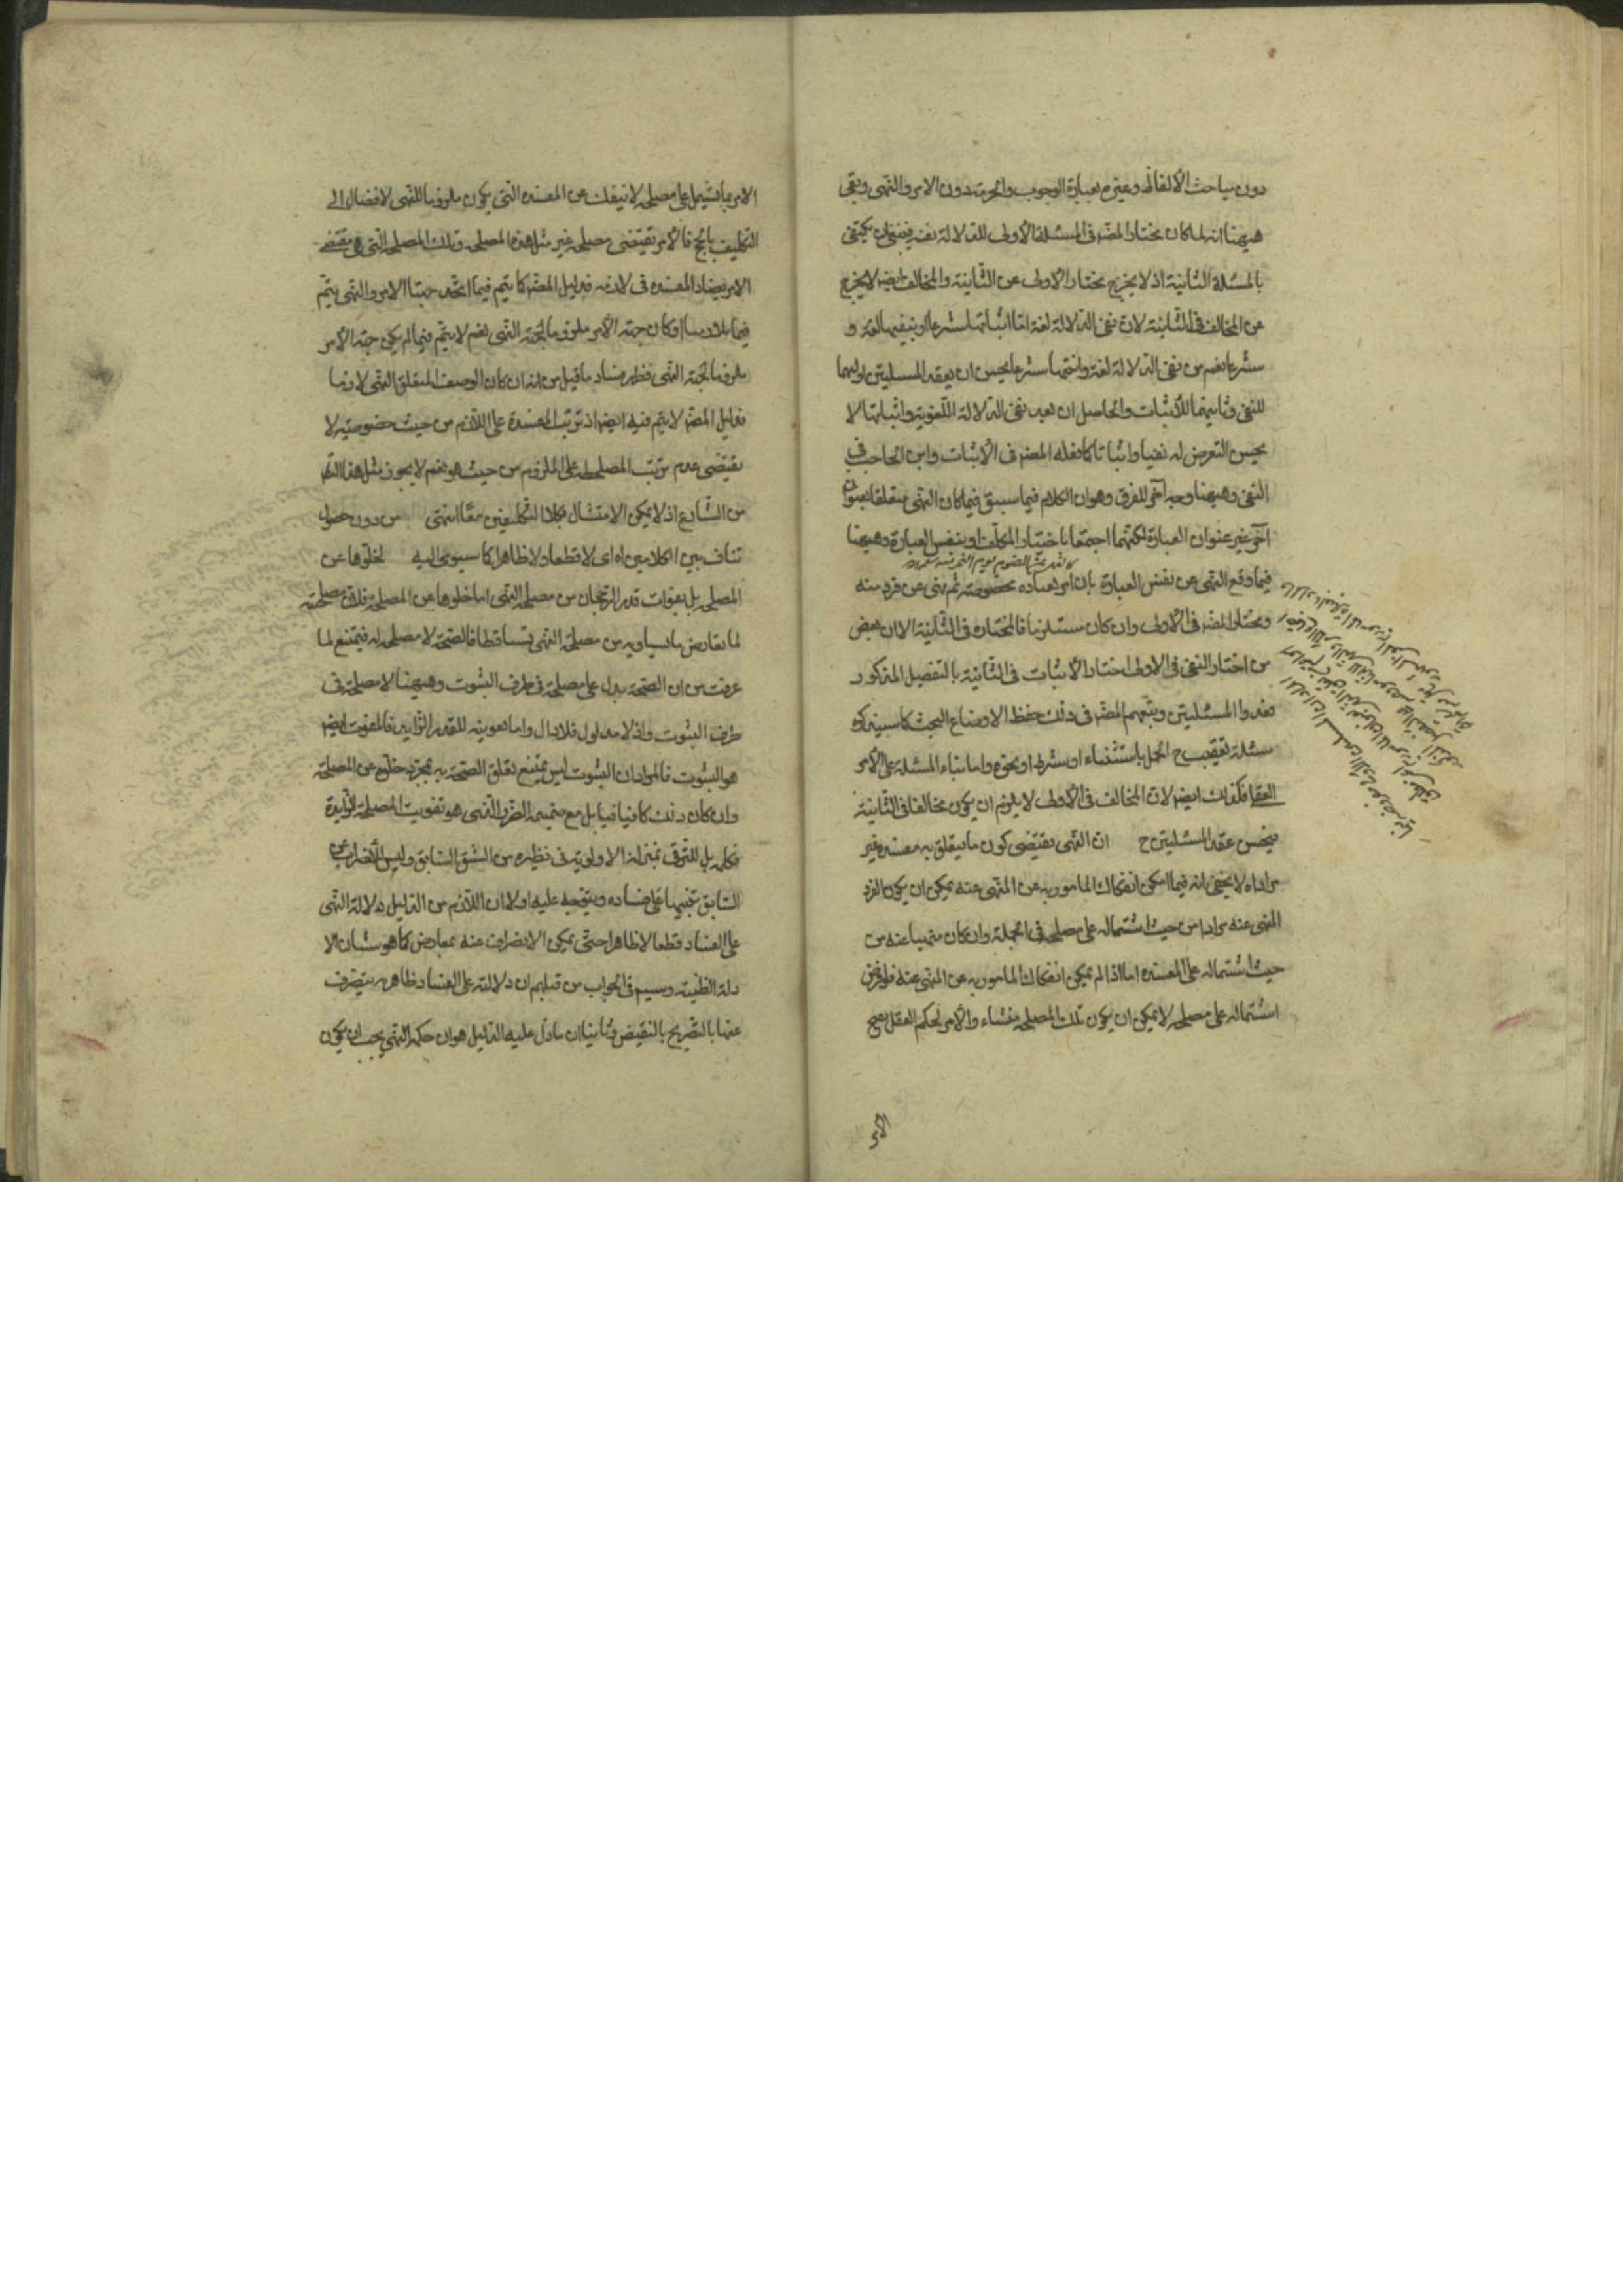 دون مباحث الألفاظ وعبّر بعبارة الوجوب والحرمة دون الامر والنهى وبقى
هيهنا انه لما كان مختار المصّ فى المسئلة الأولى للدلالة فينبغى ان يكتفى
بالمسئلة الثانية اذ لا يخرج مختار الأولى عن الثانية والمخالف ايضا لا يخرج
عن المخالف فى الثانية لان نفى الدلالة لغة امّا اثباتها شرعا او بنفيها لغة و
شرعا نعم من نفى الدلالة لغة واثبتها شرعا يحسن ان يعقد المسئلتين اوليهما
للنفى وثانيتهما للأثبات والحاصل ان بعد نفى الدلالة اللّغوية واثباتها لا
يحسن التعرض له نفيا واثباتا كما فعله المصّ فى الأثبات وابن الحاجب فى
النفى وهيهنا وجه آخر للفرق وهو ان الكلام فيما سبق فيما كان النهى متعلقا بعنوان
آخر غير عنوان العبارة لكنّهما اجتمعا باختيار المكلّف او بنفس العبارة وهيهنا
فيما وقع النهى عن نفس العبارة بان امر بعباده مخصوصة ثم نهى عن فرد منه
ومختار المصّ فى الأولى وان كان مستلزما فالمختاره فى الثانية الا ان بعض
من اختار النفى فى الاولى اختار الأثبات فى الثانية بالتفصيل المذكور
فعدوا المسئلتين وتبعهم المصّ فى ذلك حفظ الاوضاع البحث كما سيذكره
مسئلة تعقيب ح الجمل باستثناء او شرط او نحوه واما بناء المسئلة على الأمر
العقلى فكذلك ايضا لان المخالف فى الأولى لا يلزم ان يكون مخالفا فى الثانية
فيحسن عقد المسئلتين ح ان النهى يقتضى كون ما يتعلق به مفسدة غير
مراد اه لا يخفى انه فيما امكن انفكاك المامور به عن المنهى عنه يمكن ان يكون الفرد
المنهى عنه مرادا من حيث اشتماله على مصلحة فى الجملة وان كان منهيا عنه من
حيث اشتماله على المفسدة اما اذا لم يمكن انفكاك المامور به عن المنهى عنه فلو فرض
اشتماله على مصلحة لا يمكن ان يكون تلك المصلحة منشاء والأمر لحكم العقل بقبح
الامر
الامر بما يشتمل على مصلحة لا ينفك عن المفسدة التى يكون ملزوما للنهى لافضاله الى
التكليف بالمح فالأمر يقتضى مصلحة غير مثل هذه المصلحة وتلك المصلحة التى هى مقتضى
الامر يضاد المفسده فى لازمه فدليل المصّ كما يتم فيما اتحد جهتا الامر والنهى يتم
فيما تلازما او كان جهة الأمر ملزوما لجهة النهى نعم لا يتم فيما لم يكن جهة الأمر
ملزوما لجهة النهى فظهر فساد ما قيل من انه ان كان الوصف المتعلق النهى لازما
فدليل المصّ لا يتم فيه ايضا اذ ترتب المفسدة على اللازم من حيث خصوصيته لا
يقتضى عدم ترتب المصلحة على الملزوم من حيث هو نعم لا يجوز مثل هذا النهى
من الشارع اذ لا يمكن الامتثال بكلا التكليفين معًا انتهى من دون حصول
تناف بين الكلامين اه اى لا قطعا ولا ظاهرا كما سيومى اليه لخلوها عن
المصلحة بل بفوات قدر الرجحان من مصلحة النهى اما خلوها عن المصلحة فلان مصلحته
لما تعارض ما يساويه من مصلحة النهى تساقطا فالصحة لا مصلحة له فيمتنع لما
عرفت من ان الصحة يدل على مصلحة فى طرف الثبوت وهيهنا لا مصلحة فى
طرف الثبوت واذ لا مدلول فلا دال واما تفويته للقدر الزايد فالمفوت ايضا
هو الثبوت فالمراد ان الثبوت ليس يمتنع تعلق الصحة به بمجرد خلوه عن المصلحة
وان كان ذلك كافيا فيه بل مع ضميمه الضرر الذى هو تفويت المصلحة الزايدة
فكلمه بل للترقى بمنزله الاولوية فى نظيره من الشق السابق وليس للأضراب عن
السابق تنبيها على فساده ويتوجه عليه اولا ان اللازم من الدليل دلالة النهى
على الفساد قطعا لا ظاهرا حتى يمكن الانصراف عنه بمعارض كما هو شان الا
دلة الظنية وسيم فى الجواب من قبلهم ان دلالته على الفساد ظاهره يتصرف
عنها بالتصريح بالنقيض وثانيا ان ما دل عليه الدليل هو ان حكمه النهى يجب ان يكون